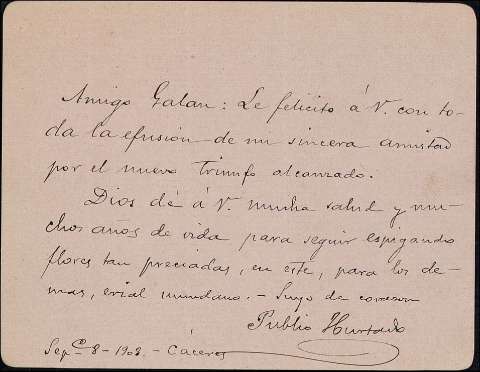 Amigo Galan: Le felicito á V. con to-
da la efusión de mi sincera amistad
por el nuevo triunfo alcanzado.
Dios dé á V. mucha salud y mu-
chos años de vida para seguir espigando
flores tan preciadas, en este, para los de-
mas, erial mundano. - Suyo de corazon
Publio Hurtado
Sepe 8-1902. - Cáceres